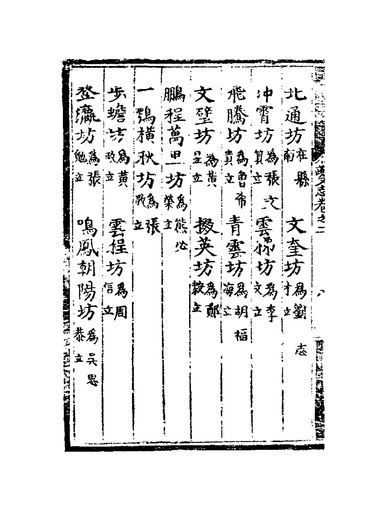 志卷之二
北通坊 在縣南 文奎坊 為劉志才立
冲霄坊 為張文質立 雲梯坊 為李文立
飛騰坊 為魯希真立 青雲坊 為胡福海立
文璧坊 為黃立 掇英坊 為鄭立
鵬程萬里坊 為熊必榮立
一鶚橫秋坊 為張立
步蟾坊 為黃政立 雲程坊 為周信立
登瀛坊 為張勉立 鳴鳳朝陽坊 為吳思恭立